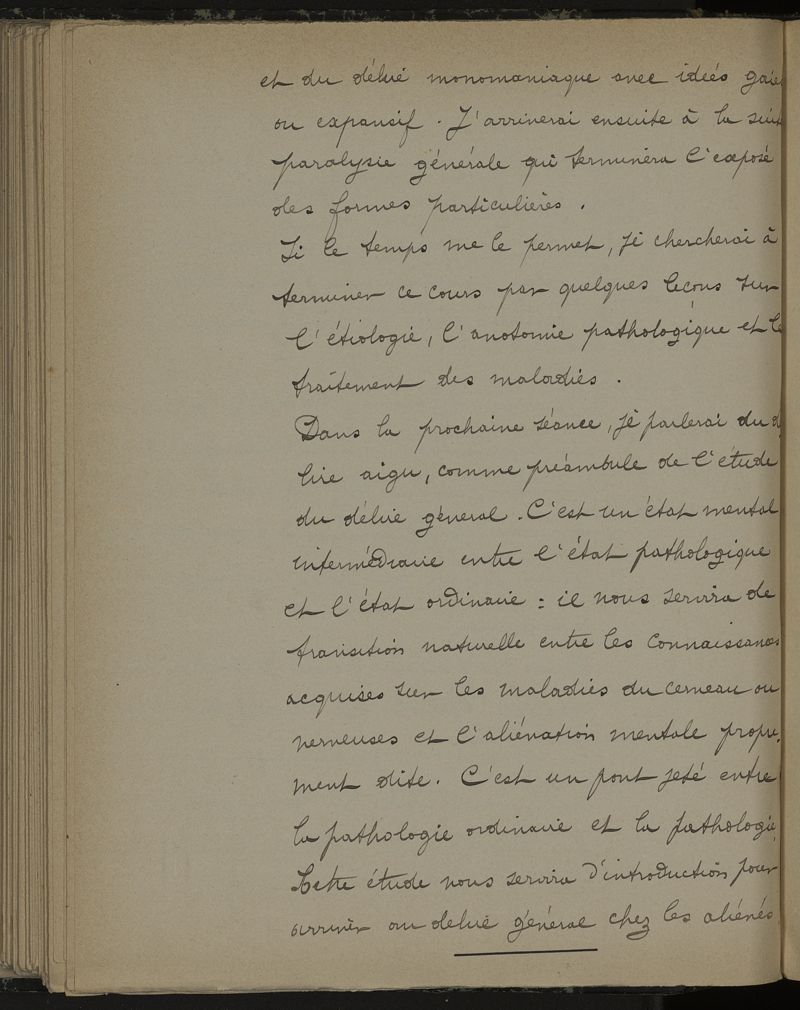 et du délire monomaniaque avec idées gaies
ou expansif. J'arriverai ensuite à la
paralysie générale qui terminera l'exposé
des formes particulières.
Si le temps me le permet, je chercherai à
terminer ce cours par quelques leçons sur
l'étiologie, l'anatomie pathologique et le
traitement des maladies.
Dans la prochaine séance, je parlerai du dé
lire aigu, comme préambule de l'étude
du délire général. C'est un état mental
intermédiaire entre l'état pathologique
et l'état ordinaire : il nous servira de
transition naturelle entre les connaissances
acquises sur les maladies du cerveau ou
nerveuses et l'aliénation mentale propre-
ment dite. C'est un pont jeté entre
la pathologie ordinaire et la pathologie
Cette étude nous servira d'introduction pour
arriver au délire général chez les aliénés